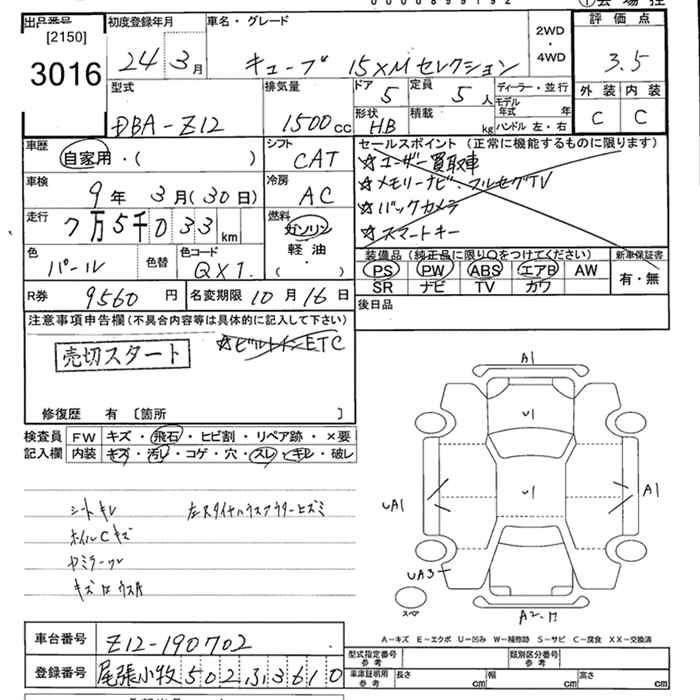 出品番号 初度登録年月 車名・グレード 2WD・4WD 評価点
[2150]
3016
24 3月 キューブ 15XMセレクション 3.5
型式 排気量 ドア 定員 ディーラー・並行 外装 内装
DBA-Z12 1500cc 5 5人 モデル年式 年 C C
形状 積載 ハンドル 左・右
HB kg
車歴 シフト セールスポイント (正常に機能するものに限ります)
自家用・( ) CAT ☆ユーザー買取車
車検 冷房 ☆メモリーナビ・フルセグTV
9年 3月(30日) AC ☆バックカメラ
走行 燃料 ☆スマートキー
7万5千033km ガソリン
軽油
・
( )
色 色替 色コード 装備品 (純正品に限り○をつけてください) 新車保証書
パール QX1 PS PW ABS エアB AW 有・無
SR ナビ TV カワ
R券 9560円 名変期限 10月16日 後日品
注意事項申告欄 (不具合内容等は具体的に記入して下さい)
売切スタート ☆ビルトインETC
修復歴 有 〔箇所 〕
検査員 FW キズ・飛石・ヒビ割・リペア跡・×要
記入欄 内装 キズ・汚レ・コゲ・穴・スレ・キレ・破レ
シートキレ
ホイルCキズ
A1
U1
U1
UA1
A1
UA3
スペア
A-キズ E-エクボ U-凹み W-補修跡 S-サビ C-腐食 XX-交換済
車台番号 Z12-190702
登録番号 尾張小牧 502 3610
型式指定番号 参考 類別区分番号 参考
車庫証明用 参考 長さ cm 幅 cm 高さ cm